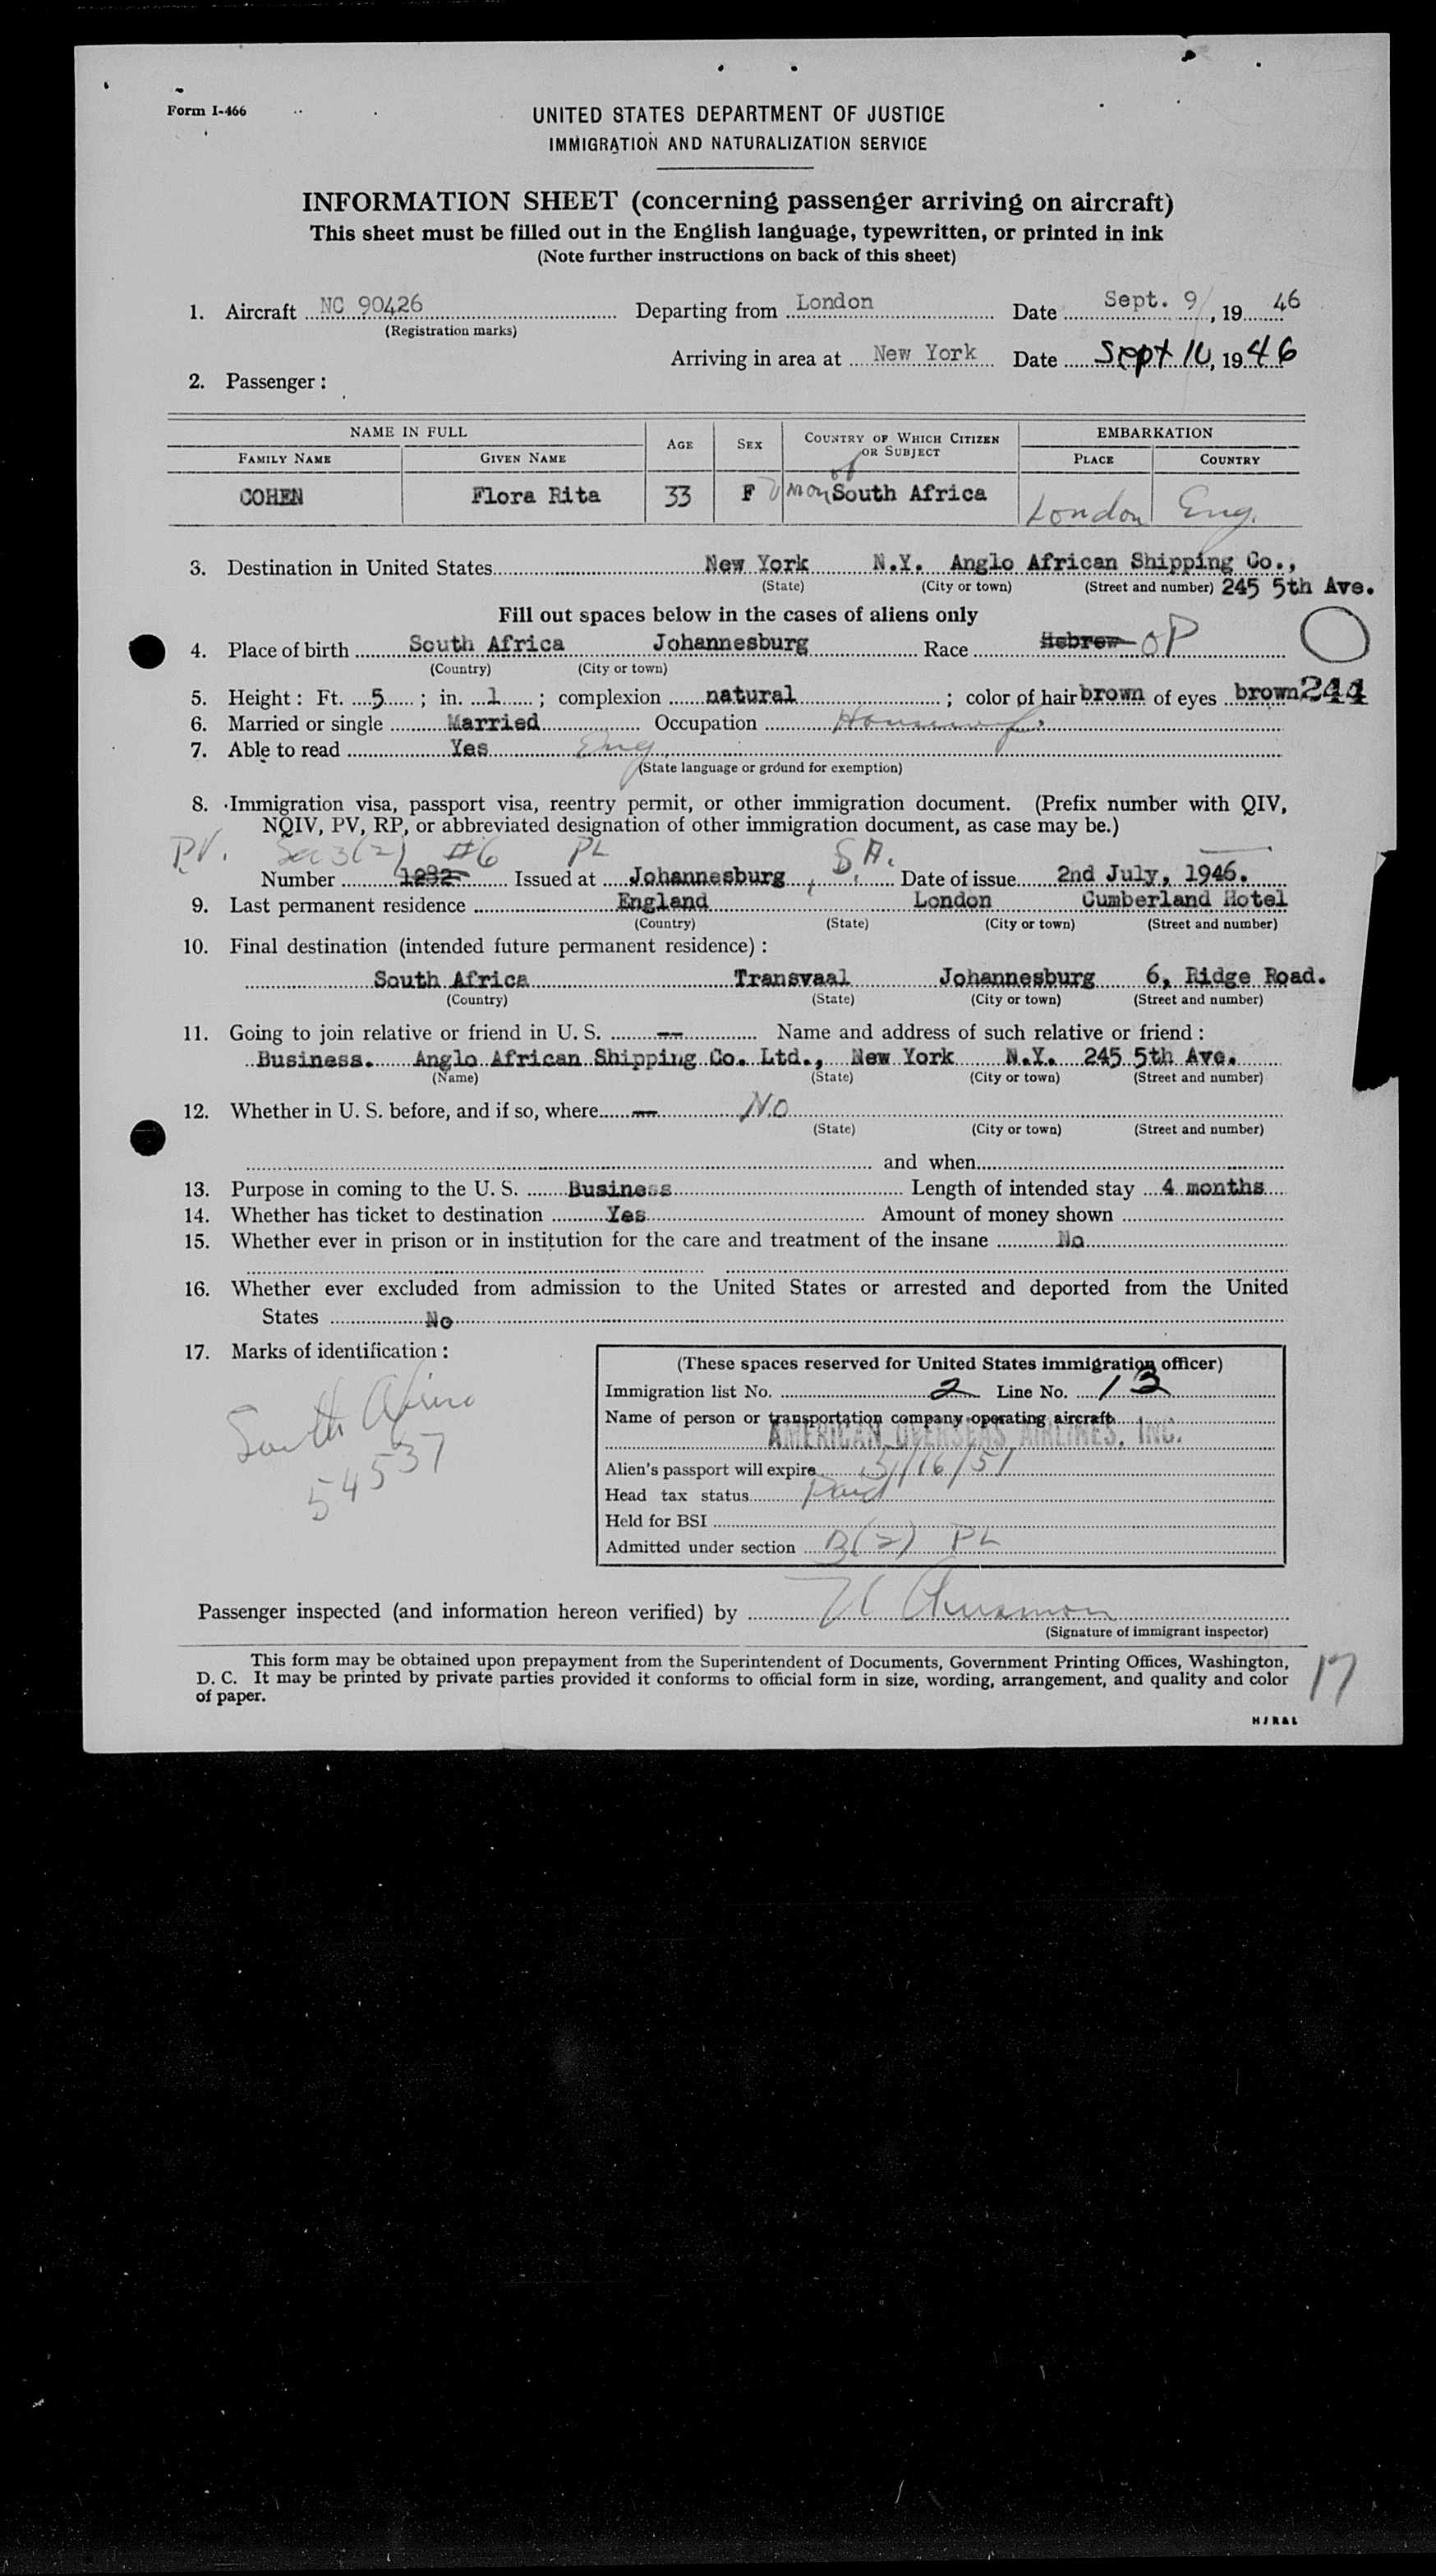 Form I-466
UNITED STATES DEPARTMENT OF JUSTICE
IMMIGRATION AND NATURALIZATION SERVICE
INFORMATION SHEET (concerning passenger arriving on aircraft)
This sheet must be filled out in the English language, typewritten, or printed in ink
(Note further instructions on back of this sheet)
1. Aircraft NC 90426 Departing from London Date Sept. 9, 19 46
(Registration marks)
Arriving in area at New York Date Sept 10, 1946
2. Passenger :
NAME IN FULL AGE SEX COUNTRY OF WHICH CITIZEN OR SUBJECT EMBARKATION
FAMILY NAME GIVEN NAME PLACE COUNTRY
COHEN Flora Rita 33 F Union of South Africa London Eng.
3. Destination in United States New York N.Y. Anglo African Shipping Co.,
(State) (City or town) (Street and number) 245 5th Ave.
Fill out spaces below in the cases of aliens only
4. Place of birth South Africa Johannesburg Race Hebrew OP
(Country) (City or town)
5. Height : Ft. 5 ; in. 1 ; complexion natural ; color of hair brown of eyes brown 244
6. Married or single Married Occupation Housewife
7. Able to read Yes Eng
(State language or ground for exemption)
8. Immigration visa, passport visa, reentry permit, or other immigration document. (Prefix number with QIV,
NQIV, PV, RP, or abbreviated designation of other immigration document, as case may be.)
PV. Sec 3(2) #6 PL S.A.
Number 1282 Issued at Johannesburg, Date of issue 2nd July, 1946.
9. Last permanent residence England London Cumberland Hotel
(Country) (State) (City or town) (Street and number)
10. Final destination (intended future permanent residence) :
South Africa Transvaal Johannesburg 6, Ridge Road.
(Country) (State) (City or town) (Street and number)
11. Going to join relative or friend in U. S. -- Name and address of such relative or friend :
Business. Anglo African Shipping Co. Ltd., New York N.Y. 245 5th Ave.
(Name) (State) (City or town) (Street and number)
12. Whether in U. S. before, and if so, where -- No
(State) (City or town) (Street and number)
and when
13. Purpose in coming to the U. S. Business Length of intended stay 4 months
14. Whether has ticket to destination Yes Amount of money shown
15. Whether ever in prison or in institution for the care and treatment of the insane No
16. Whether ever excluded from admission to the United States or arrested and deported from the United
States No
17. Marks of identification :
South Africa
54537
(These spaces reserved for United States immigration officer)
Immigration list No. 2 Line No. 13
Name of person or transportation company operating aircraft
AMERICAN OVERSEAS AIRLINES, INC.
Alien's passport will expire 3/16/51
Head tax status Paid
Held for BSI
Admitted under section 3(2) PL
Passenger inspected (and information hereon verified) by
(Signature of immigrant inspector)
This form may be obtained upon prepayment from the Superintendent of Documents, Government Printing Offices, Washington,
D. C. It may be printed by private parties provided it conforms to official form in size, wording, arrangement, and quality and color
of paper.
17
H/R&L